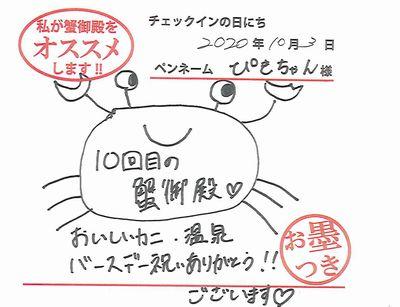 私が蟹御殿を
オススメ
します!!
チェックインの日にち
2020年10月3日
ペンネーム ぴきちゃん様
10回目の
蟹御殿♡
おいしいカニ・温泉
バースデー祝いありがとう!!
ございます♡
お墨
つき